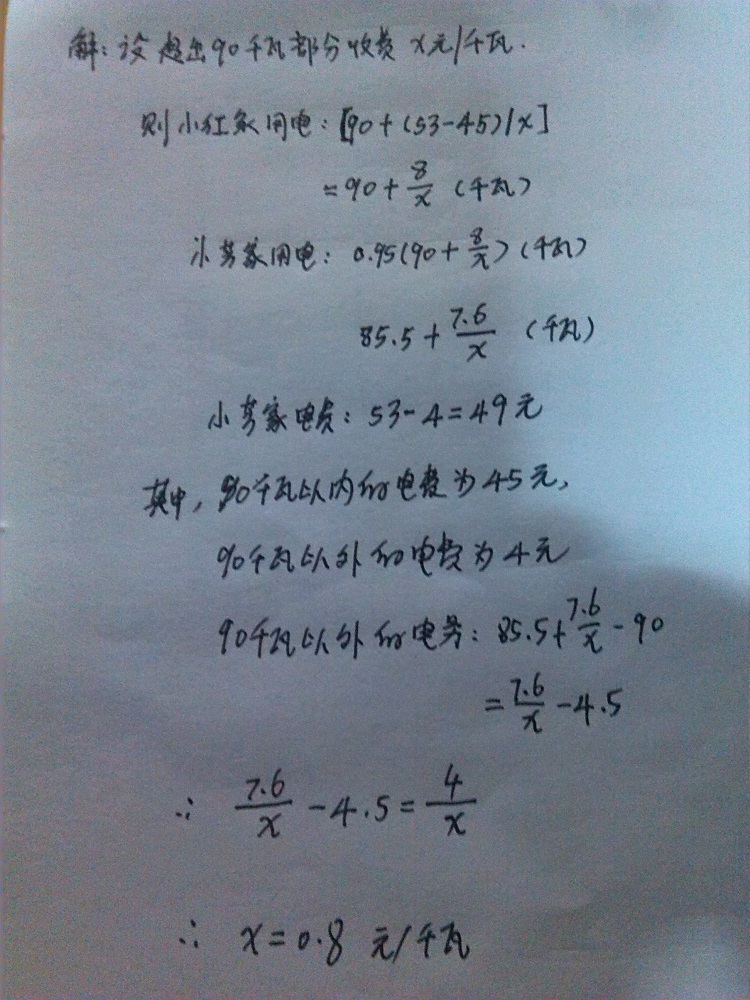 解：设超出90千瓦部分收费 x元/千瓦.
则小红家用电：[90+(53-45)/x]
=90+8/x (千瓦)
小芳家用电：0.95(90+8/x)(千瓦)
85.5+7.6/x (千瓦)
小芳家电费：53-4=49元
其中，90千瓦以内的电费为45元，
90千瓦以外的电费为4元
90千瓦以外的电务：85.5+7.6/x-90
=7.6/x-4.5
∴ 7.6/x-4.5=4/x
∴ x=0.8 元/千瓦